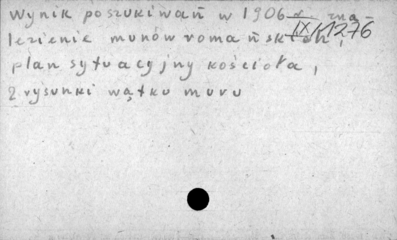 Wynik poszukiwań w 1906 r. zna
IX/1276
lezienie murów romańskich,
plan sytuacyjny kościoła,
2 rysunki wątku muru